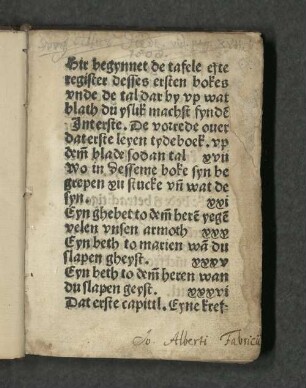 Hir begynnet de tafele efte
register desses ersten bokes
vnde de tal dar by vp wat
blath du yslik machst fyndē
Int erste. De vorrede ouer
dat erste leyen tydeboek. vp
dem̄ blade sodan tal xvii
Wo in desseme boke syn be
grepen vii stucke vn̄ wat de
syn. xvi
Eyn ghebet to dem̄ herē yegē
velen vnsen armoth xxx
Eyn beth to marien wā du
slapen gheyst. xxxv
Eyn beth to dem̄ heren wan
du slapen geyst. xxxvi
Dat erste capittl. Eyne kref-
Jo. Alberti Fabricii